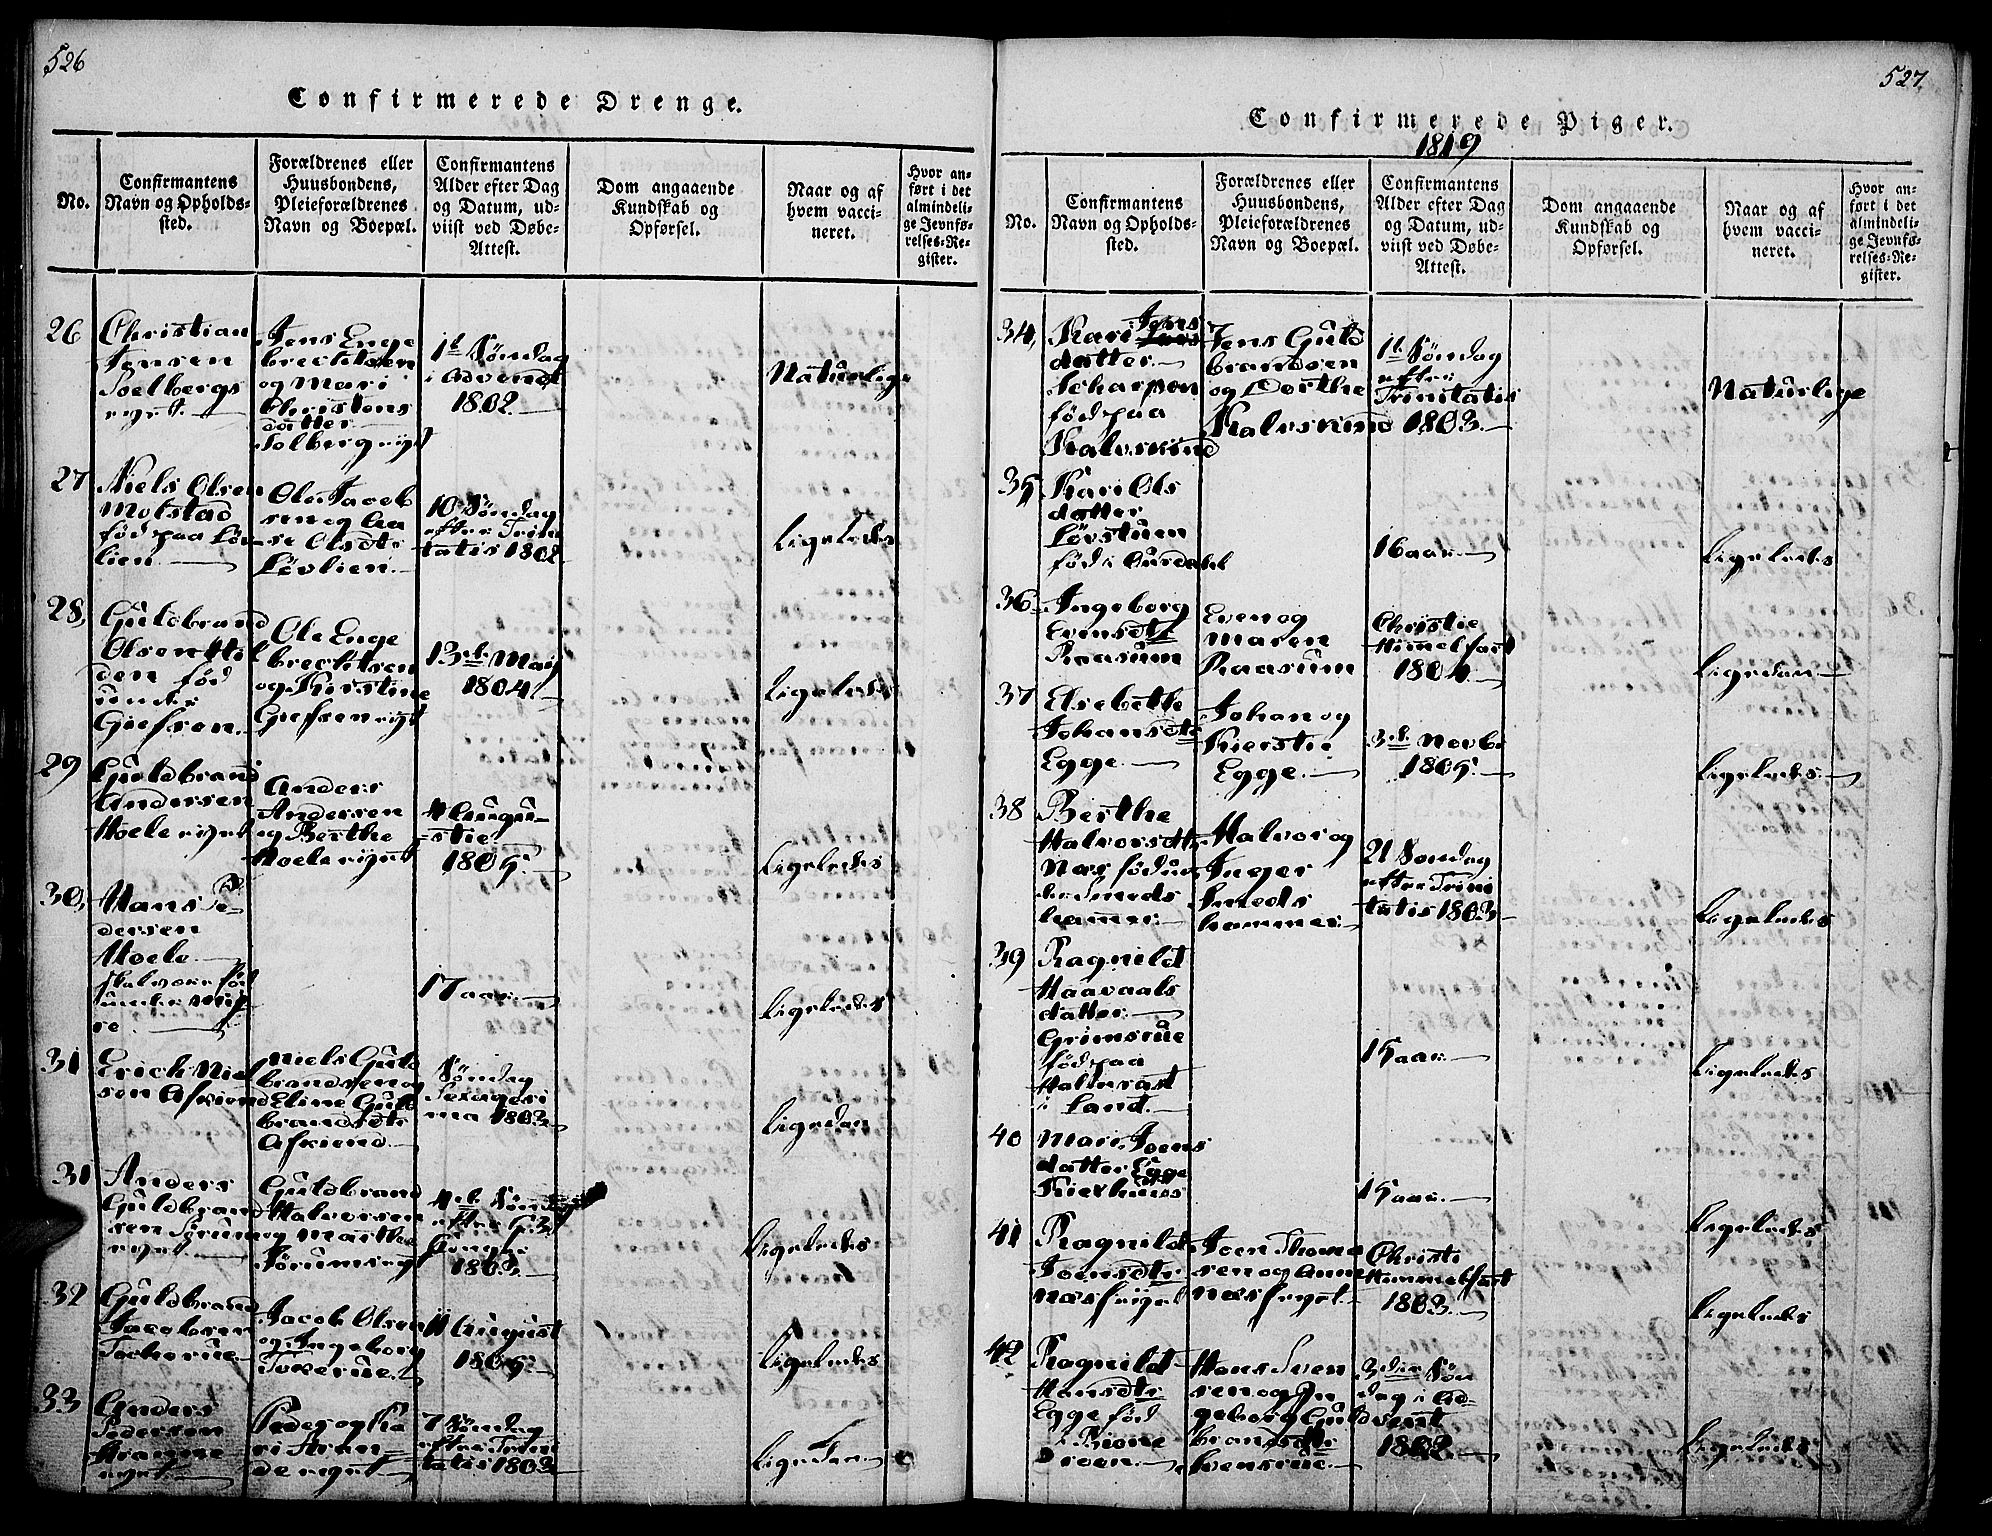 526
Confirmerede Drenge.
No.
Confirmantens
Navn og Opholds-
sted.
Forældrenes eller
Huusbondens,
Pleieforældrenes
Navn og Boepæl.
Confirmantens
Alder efter Dag
og Datum, ud-
viist ved Døbe-
Attest.
Dom angaaende
Kundskab og
Opførsel.
Naar og af
hvem vacci-
neret.
Hvor an-
ført i det
almindeli-
ge Jevnfø-
relses-Re-
gister.
26
Christian
Jensen
Soelbergs
eyet
Jens Enge
brectitsen
og Mari
Christens
datter
Solberg eyet
1ste Søndag
i Advendt
1802.
Naturlige
27
Niels Olsen
Molstad
fød paa Løv-
lien
Ole Jacob
sen og Aa
se Olsdtr
Løvlien
10 Søndag
efter Trini
tatis 1802
Ligeledes
28,
Guldbrand
Olsen
den fød
under
Giefsen.
Ole Enge
brectitsen
og Kirstine
Giefsen eyet
13de Maij
1804.
Ligeledes
29
Guldbrand
Andersen
Hoele eyet
Anders
Andersen
og Berthe
Hoele eyet
4 Augu-
sti
1805.
Ligeledes
30,
Hans Pe-
dersen
Hoele
fød
under
17 aar
Ligeledes
31
Erich Niel
sen Askiend
Niels Guld
brandsen og
Eline Guld
brandsdtr
Askiend
Søndag
Sexagesi
ma 1803.
Ligedan
31
Anders
Guldbrand
sen Sørum
eyet
Guldbrand
Halvorsen
og Marthe
Sørums eyet
4de Søndag
efter
1803.
Ligeledes
32
Guldbrand
Jacobsen
Tocherue
Jacob Olsen
og Ingeborg
Tokerue
11 August
1805.
Ligeledes
33
Anders
Pedersen
eyet
Peder og Ka
ri
eyet
7 Søndag
efter Trini
tatis 1803
Ligedan
527.
Confirmerede Piger.
1819
No.
Confirmantens
Navn og Opholds-
sted.
Forældrenes eller
Huusbondens,
Pleieforældrenes
Navn og Boepæl.
Confirmantens
Alder efter Dag
og Datum, ud-
viist ved Døbe-
Attest.
Dom angaaende
Kundskab og
Opførsel.
Naar og af
hvem vacci-
neret.
Hvor an-
ført i det
almindeli-
ge Jevnfø-
relses-Re-
gister.
34,
Kari Jens
datter
Scharpen
fød paa
Kalvsiund
Jens Guld
brandsen
og Dorthe
Kalvsiund
1te Søndag
efter
Trinitatis
1803.
Naturlige
35
Kari Ols
datter
Løvstuen
fød i Aurdahl
16 aar
Ligeledes
36
Ingeborg
Evensdtr
Raasum
Even og
Maren
Raasum
Christie
Himelfart
1804
Ligedan
37
Elsebethe
Johansdtr
Egge
Johan og
Kierstie
Egge
3de Novbr
1805.
Ligeledes
38
Berthe
Halvorsdtr
Næs fød un-
der Smeds
hammer
Halvor og
Inger
Smeds
hammer
21 Søndag
efter Trini
tatis 1803
Ligeledes
39
Ragnildt
Haavaals
datter
Grimsrue
fød paa
i Land.
15 aar
Ligeledes
40
Mari Joens
datter Egge
15 aar
Ligeledes
41
Ragnildt
Joensdtr
Næsseyet
Joen Thoma
sen og Anne
Næsseyet
Christi
Himmelfart
1803.
Ligeledes
42
Ragnildt
Hansdtr
Egge fød
i
Hans Iven
sen og In
geborg Guld
brandsdtr
Ivensrue
3die Søn
dag i Ad-
vent
1802
Ligeledes